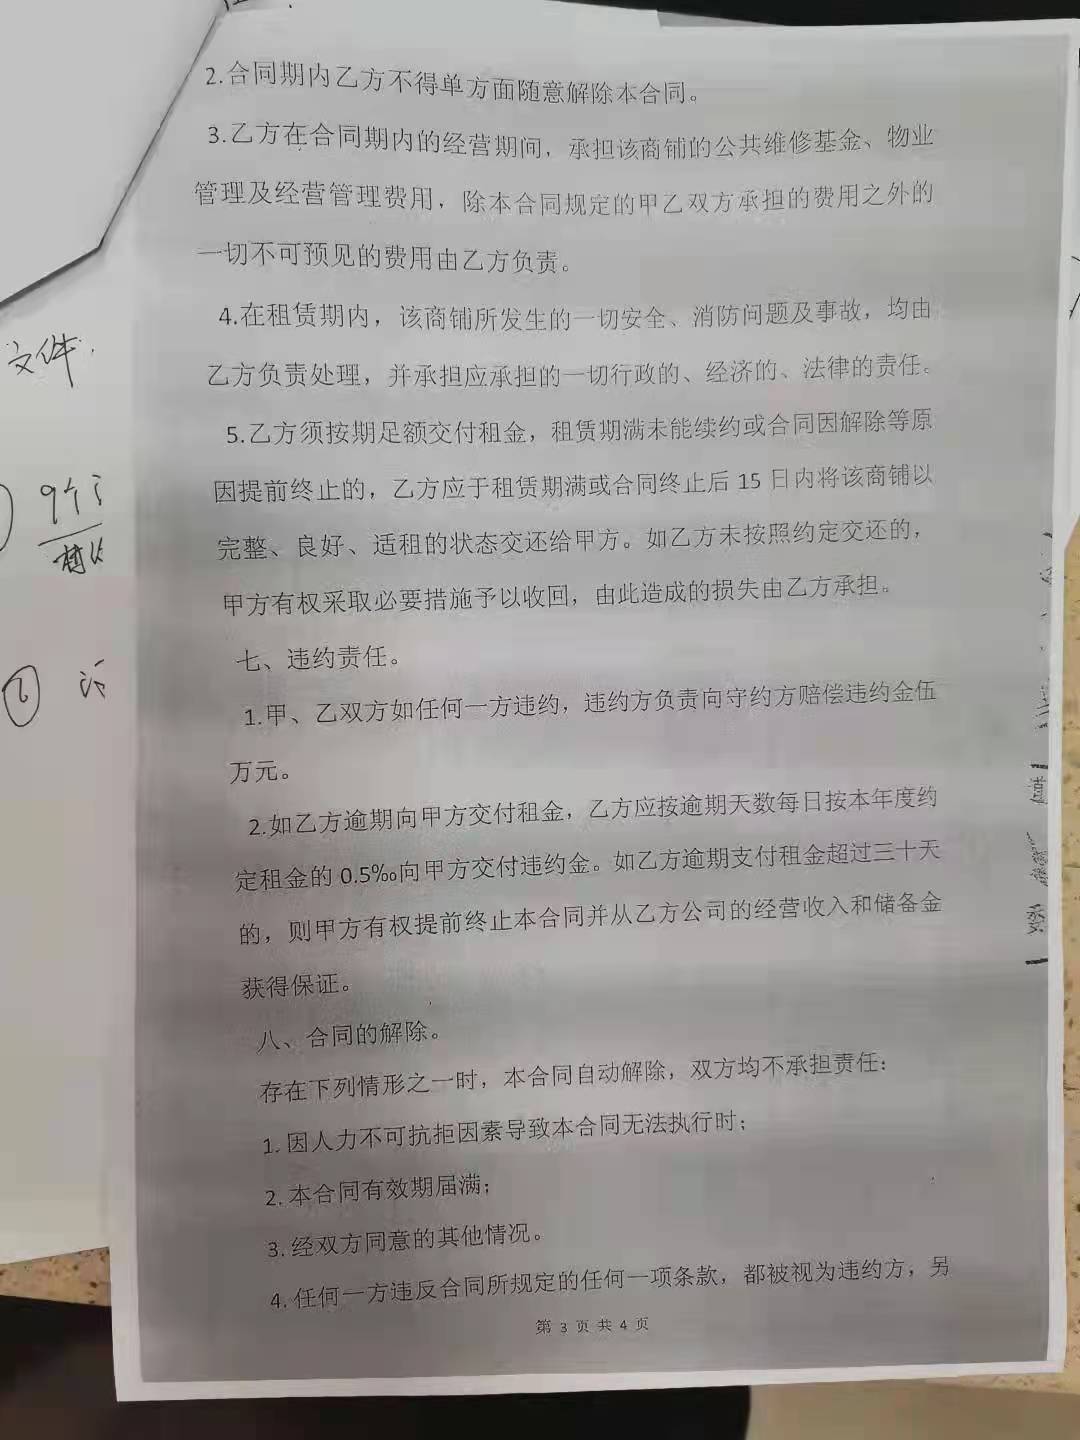 2.合同期内乙方不得单方面随意解除本合同。
3.乙方在合同期内的经营期间，承担该商铺的公共维修基金、物业
管理及经营管理费用，除本合同规定的甲乙双方承担的费用之外的
一切不可预见的费用由乙方负责。
4.在租赁期内，该商铺所发生的一切安全、消防问题及事故，均由
乙方负责处理，并承担应承担的一切行政的、经济的、法律的责任。
5.乙方须按期足额交付租金，租赁期满未能续约或合同因解除等原
因提前终止的，乙方应于租赁期满或合同终止后 15 日内将该商铺以
完整、良好、适租的状态交还给甲方。如乙方未按照约定交还的，
甲方有权采取必要措施予以收回，由此造成的损失由乙方承担。
七、违约责任。
1.甲、乙双方如任何一方违约，违约方负责向守约方赔偿违约金伍
万元。
2.如乙方逾期向甲方交付租金，乙方应按逾期天数每日按本年度约
定租金的 0.5‰向甲方交付违约金。如乙方逾期支付租金超过三十天
的，则甲方有权提前终止本合同并从乙方公司的经营收入和储备金
获得保证。
八、合同的解除。
存在下列情形之一时，本合同自动解除，双方均不承担责任：
1. 因人力不可抗拒因素导致本合同无法执行时；
2. 本合同有效期届满；
3. 经双方同意的其他情况。
4. 任何一方违反合同所规定的任何一项条款，都被视为违约方，另
第 3 页 共 4 页
文件
9个
⑥